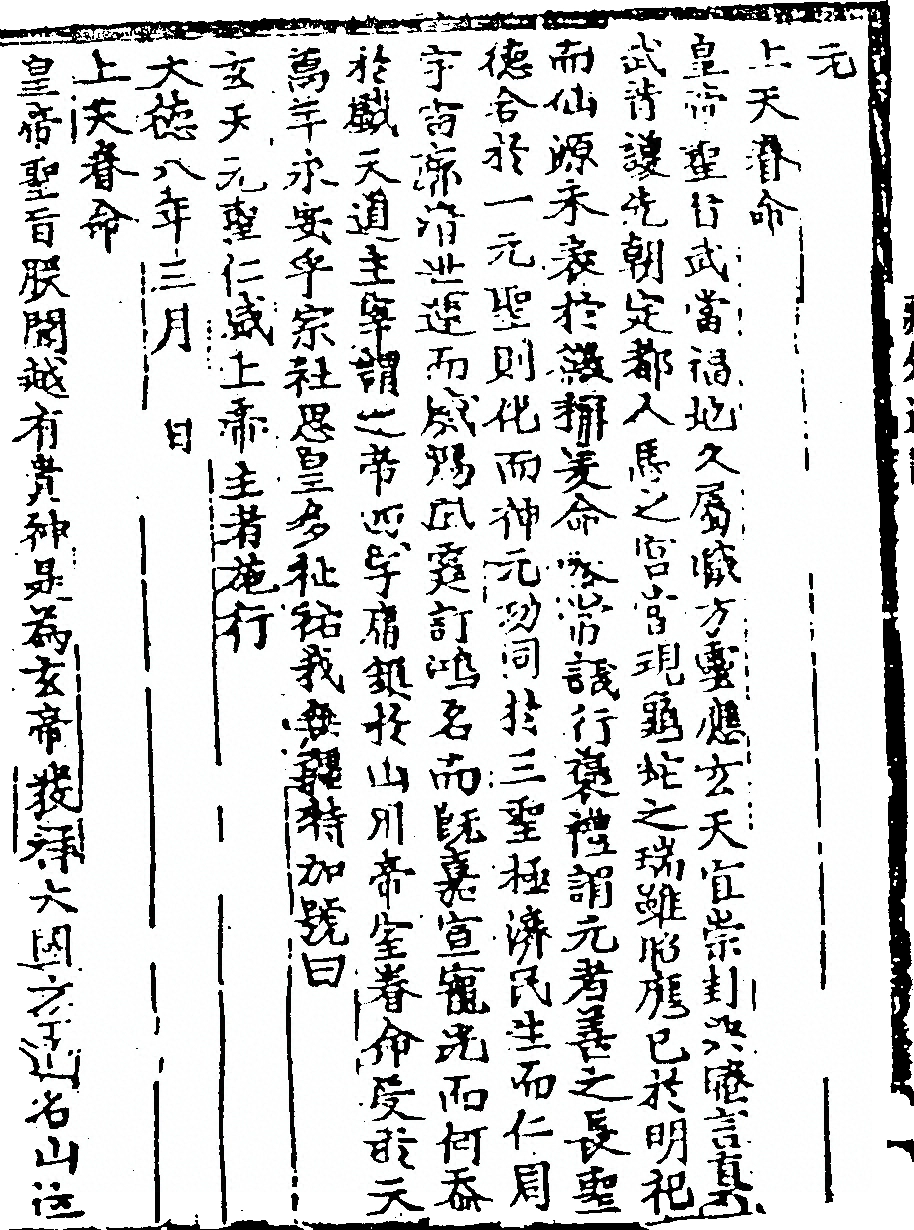 元
上天眷命
皇帝聖旨武當福地久屬職方靈應玄天宜崇封典睠言真
武昔護先朝定都人馬之宮嘗現龜蛇之瑞雖昭應已於明祀
而仙源未表於徽稱爰命奉常議行褒禮謂元者善之長聖
德合於一元聖則化而神元功同於三聖極濟民生而仁周
宇宙肅清世運而威暢風霆訂鴻名而旣嘉宣寵光而何忝
於戲天道主宰謂之帝四字膺錫於山川帝室眷命受於天
萬年永安乎宗社思皇多祉祐我無疆特加號曰
玄天元聖仁威上帝主者施行
大德八年三月 日
上天眷命
皇帝聖旨朕聞越有貴神是為玄帝發祥大國方 名山